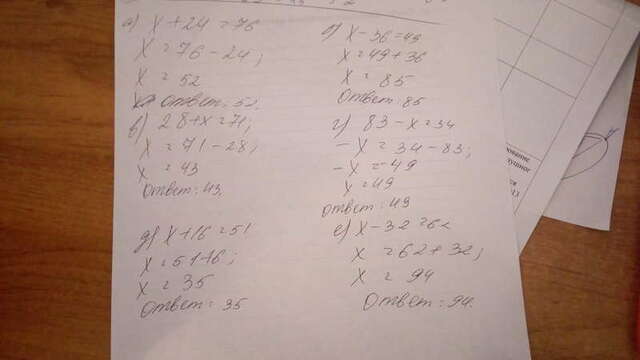 а) x + 24 = 76
x = 76 - 24;
x = 52
Ответ: 52.
б) x - 36 = 49
x = 49 + 36
x = 85
Ответ: 85
в) 28 + x = 71;
x = 71 - 28;
x = 43
Ответ: 43.
г) 83 - x = 34
- x = 34 - 83;
- x = -49
x = 49
Ответ: 49
д) x + 16 = 51
x = 51 - 16;
x = 35
Ответ: 35
е) x - 32 = 62
x = 62 + 32;
x = 94
Ответ: 94.